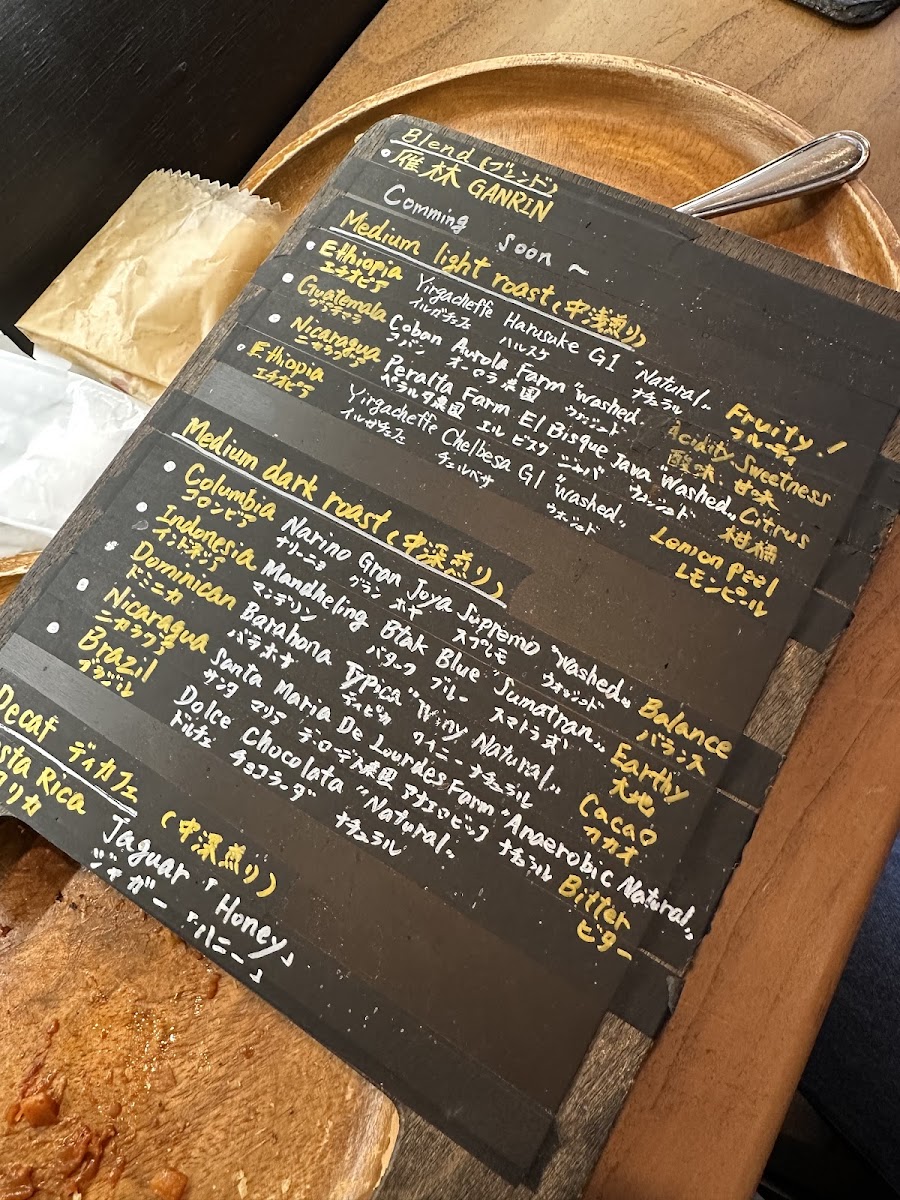 Blend (ブレンド)
・雁林 GANRIN
Comming soon ~
Medium light roast (中浅煎り)
・Ethiopia Yirgacheffe Harusake G1 "Natural„ Fruity!
エチオピア イルガチェフェ ハルスケ ナチュラル フルーティ
・Guatemala Coban Aurola Farm "Washed„ Acidity Sweetness
グァテマラ コバン オーロラ農園 ウォッシュド 酸味、甘味
・Nicaragua Peralta Farm El Bisque Java "Washed„ Citrus
ニカラグア ペラルタ農園 エル ビスケ ジャバ ウォッシュド 柑橘
・Ethiopia Yirgacheffe Chelbesa G1 "Washed„ Lemon peel
エチオピア イルガチェフェ チェルベサ ウォッシュド レモンピール
Medium dark roast (中深煎り)
・Columbia Narino Gran Joya Supremo "Washed„ Balance
コロンビア ナリーニョ グラン ホヤ スプレモ ウォッシュド バランス
・Indonesia Mandheling Btak Blue "Sumatran„ Earthy
インドネシア マンデリン バターク ブルー スマトラ式 大地
・Dominican Barahona Typica "Winy Natural„ Cacao
ドミニカ バラホナ ティピカ ワイニーナチュラル カカオ
・Nicaragua Santa Maria De Lourdes Farm "Anaerobic Natural„
ニカラグア サンタ マリア デ・ローデス農園 アナエロビック ナチュラル
・Brazil Dolce Chocolata "Natural„ Bitter
ブラジル ドルチェ チョコラーダ ナチュラル ビター
Decaf ディカフェ (中深煎り)
sta Rica Jaguar 「Honey」
リカ ジャガー 「ハニー」